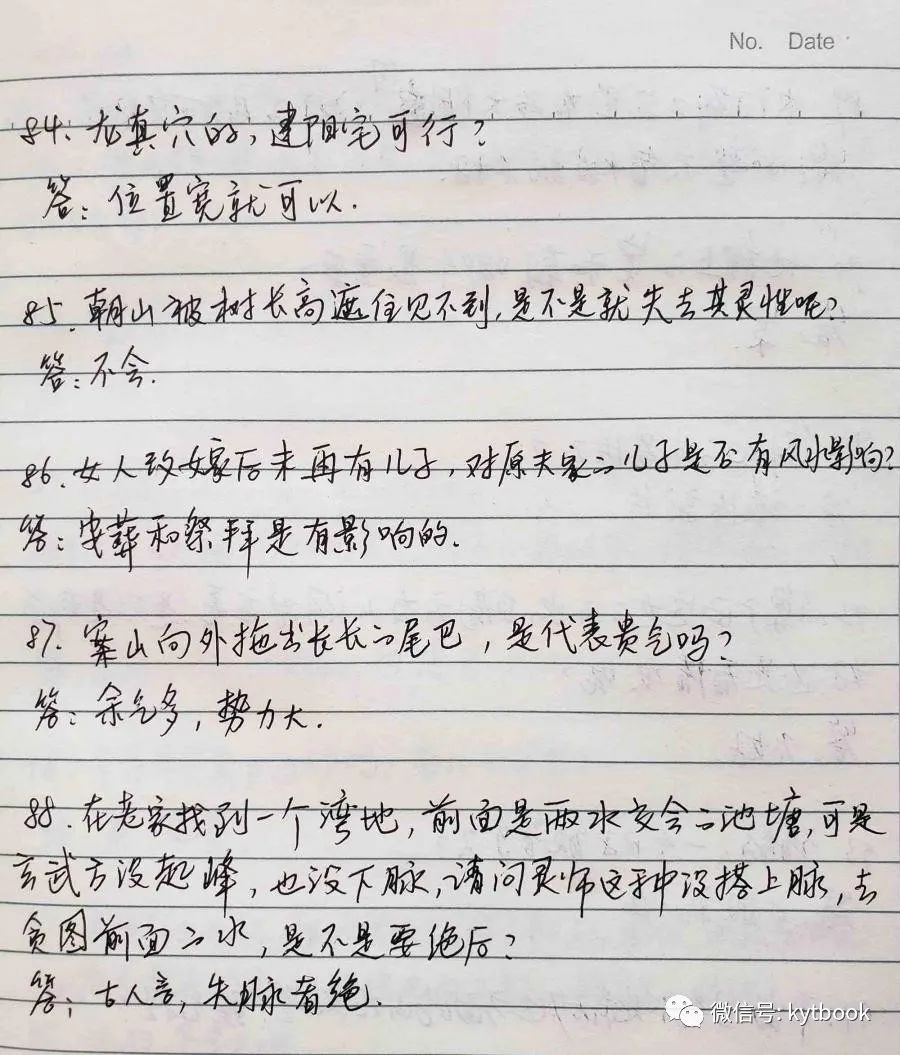 No. Date
84. 龙真穴的，建阳宅可行？
答：位置宽就可以.
85. 朝山被树长高遮住见不到，是不是就失去其灵性呢？
答：不会.
86. 女人改嫁后未再有儿子，对原夫家的儿子是否有风水影响？
答：安葬和祭拜是有影响的.
87. 案山向外拖出长长的尾巴，是代表贵气吗？
答：余气多，势力大.
88. 在老家找到一个湾地，前面是两水交会的池塘，可是
玄武方没起峰，也没下脉，请问灵师这种没搭上脉，去
贪图前面的水，是不是要绝后？
答：古人言，失脉者绝.
微信号: kytbook